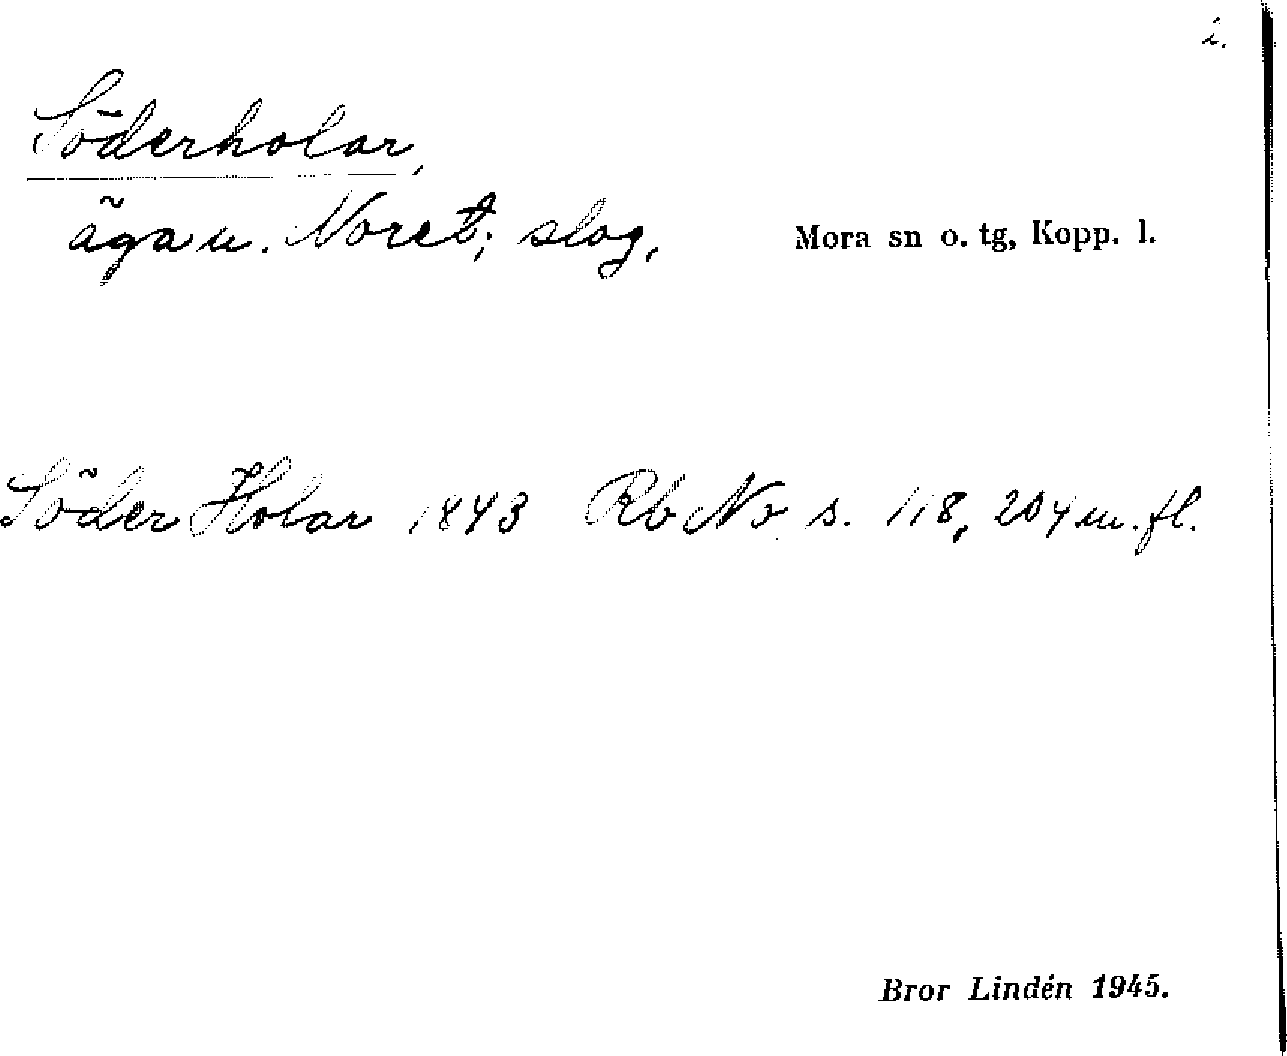 i.
Söderholar,
äga u. Noret; slog, Mora sn o. tg, Kopp. l.
Söder Holar 1843 Rb No s. 118, 204 m. fl.
Bror Lindén 1945.